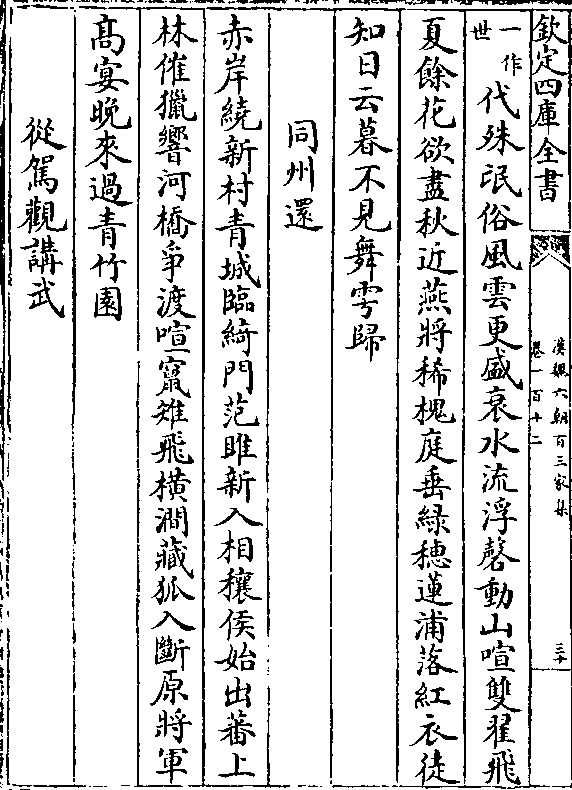 欽定四庫全書
漢魏六朝百三家集
卷一百十二
三十
一作
世
代殊氓俗風雲更盛衰水流浮磬動山喧雙翟飛
夏餘花欲盡秋近燕將稀槐庭垂綠穗蓮浦落紅衣徒
知日云暮不見舞雩歸
同州還
赤岸繞新村青城臨綺門范雎新入相穰侯始出蕃上
林催獵響河橋爭渡喧竄雉飛橫澗藏狐入斷原將軍
高宴晚來過青竹園
從駕觀講武